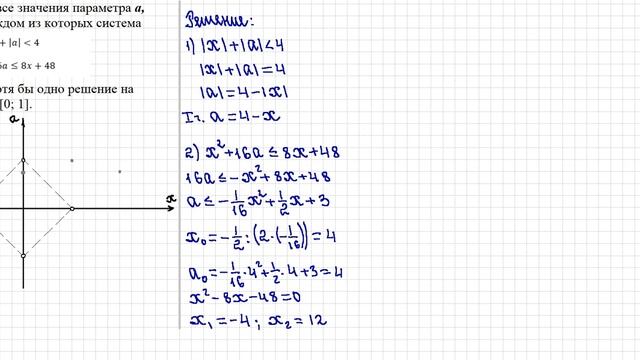 все значения параметра a,
ждом из которых система
+ |a| < 4
6a ≤ 8x + 48
отя бы одно решение на
[0; 1].
a
x
Решение:
1) |x|+|a|<4
|x|+|a|=4
|a|=4-|x|
Iч. a=4-x
2) x²+16a ≤ 8x+48
16a ≤ -x²+8x+48
a ≤ -1/16x²+1/2x+3
x₀=-1/2:(2·(-1/16))=4
a₀=-1/16·4²+1/2·4+3=4
x²-8x-48=0
x₁=-4; x₂=12